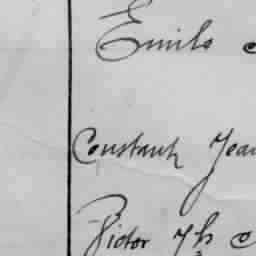 Emile
Constant Jean
Victor Th